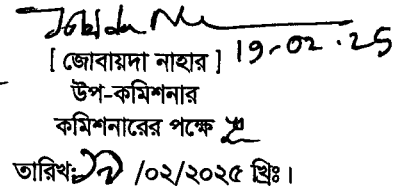 19-02-25
[ জোবায়দা নাহার ]
উপ-কমিশনার
কমিশনারের পক্ষে
তারিখ: /০২/২০২৫ খ্রিঃ।